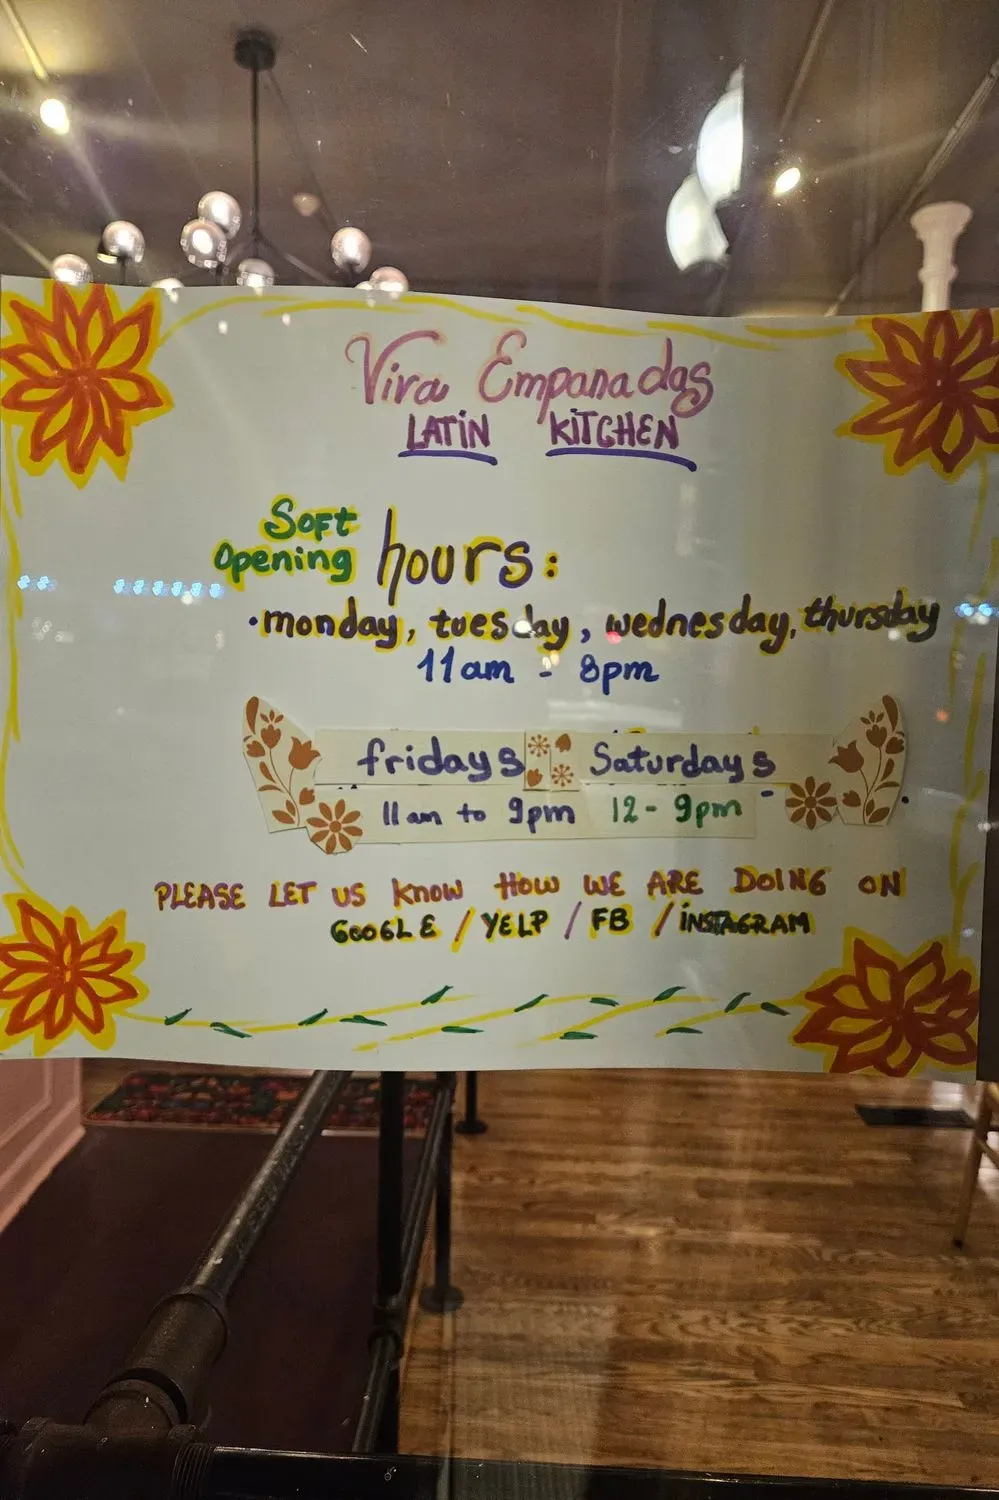 Viva Empanadas
LATIN KITCHEN
Soft
Opening hours:
·monday, tuesday, wednesday, thursday
11am - 8pm
fridays Saturdays
11am to 9pm 12-9pm
PLEASE LET US KNOW HOW WE ARE DOING ON
GOOGLE / YELP / FB / INSTAGRAM